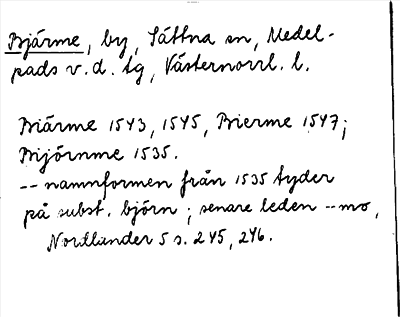 Bjärme, by, Sättna sn, Medel-
pads v. d. tg, Västernorrl. l.
Biärme 1543, 1545, Bierme 1547;
Bijörnme 1535.
-- namnformen från 1535 tyder
på subst. björn; senare leden --mo,
Nordlander 5 s. 245, 246.